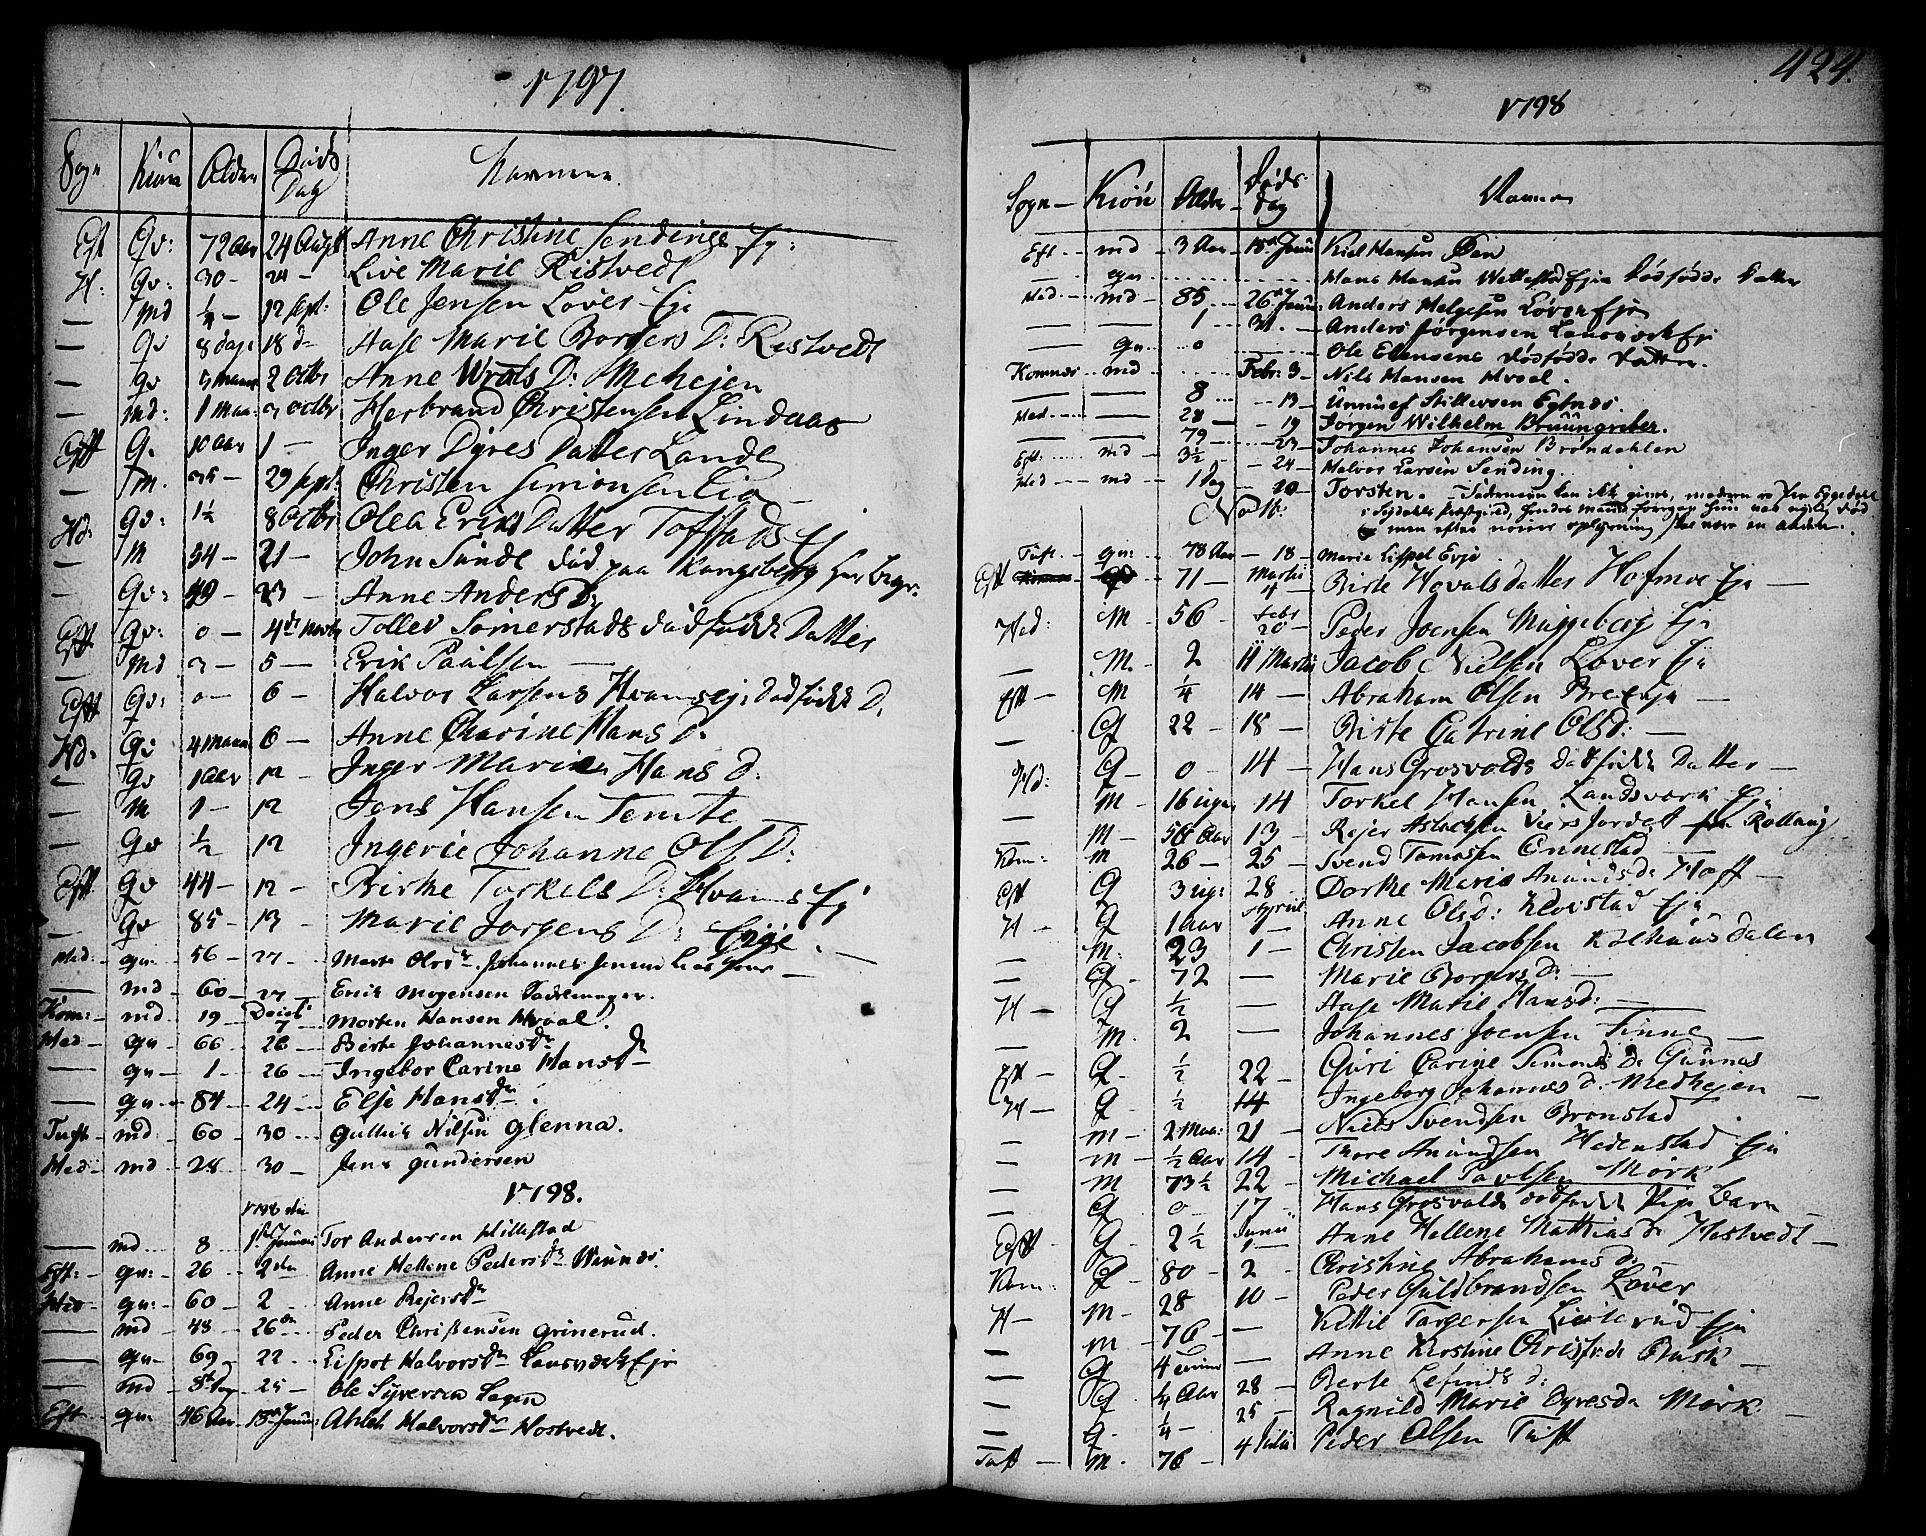 1797.
Sogn Kiøn Alder Døds Dag Navnene
Eft Qv: 72 Aar 24 Augst Anne Christine Sendinge Ej:
H: Qv: 30 — 24 — Live Marie Ristvedt
— Md ¼ — 12 Sept: Ole Jensen Lover Eje
— Qv 8 dage 18 d— Aase Marie Borgers D: Ristvedt
— Qv 2 Octbr Anne D: Mehejen
— Md: 1 Maa: Octbr Herbrand Christensen Lindaas
Eft Q. 10 Aar 1 — Inger Dyres Datter Lande
— M. 29 Sept: Christen Simonsen Lia —
Hd: Qv: 1½ 8 Octbr Olea Eriks Datter Toffstads Ej
— M 54 — 21 — John Sunde død paa Kongsberg her begr:
— Qv: 49 — 23 — Anne Anders D:
Eft Qv: 0 — 4de Novbr Tollev Somerstads dødfødde Datter
— Md 5 — Erik Paulsen —
Eft Qv: 0 — 6 — Halvor Larsens Hvams ej: dødfødde D.
Hd: Qv 4 Maan 6 — Anne Carine Hans D:
— Qv 1 Aar 12 — Inger Marie Hans D:
— M 1 — 12 Jens Hansen Temte —
— Qv ½ 12 Ingerie Johanne Ols D:
Eft. Qv 44 — 12 — Birthe Torkels D: Hvams Ej
— Qv 85 — 13 — Marie Jorgens D: —
Hed: qv: 56 — 27 — Marte Olsdr. Johannes
— md — 60 — 27 — Erich Mogensen Sadelmager.
Kom: — md — 19 — Decbr 7 — Morten Hansen Hvaal.
Hed — qv — 66 — 26 — Birte Johannesdr
— qv — 1 — 26 — Ingebor Carine Hansdr
— qv — 84 — 24 — Else Hansdr.
Tuft — md — 60 — 30 — Gullich Nilsen Glenna.
Hed — md — 28 — 30 — Jens Gundersen
1798.
1798 die
— md 8 1ste Januari Tor Andersen Hillestad
Eft: — qv: — 26 — 2den Anne Hellene Pedersdr
Hed — qv: — 60 — 2 Anne Rejersdr
— md — 48 — 26de Peder Christensen Grinerud.
— qv — 69 — 22 — Lispet Halvorsdr Lansverk Eje
— md — 8te Dag — 25 — Ole Syversen Hagen
Eft — qv. 46 Aar — 15de Januar: Ahlet Halvorsdr Hostvedt.
424.
1798
Sogn — Kiön Alder — Døds Dag Navnene
Eft. — md — 3 Aar 15de Janu Kield Hansen
— qv Hans Hansen Wettestad Ejes Dødfødde Datter
Hed — md — 85 — 26de Janu: Anders Helgesen Lover Eje
— 1 — 31. — Anders Jörgensen Lansverk Eje
— qv — 0 Ole Ellensens dødfødde Datter.
Komnæs — md Febr: 3 — Nils Hansen Hvaal.
— 8 — 13 — Sittersen Egtnæs.
Hed — 28 — 19 — Jörgen Wilhelm Bruungreber.
— 79 — 23 — Johannes Johansen Bröndahlen
Eft: — md — 3½ — 24 — Halvor Larsen Sending.
Hed — md — 1 Dag — 20 — Torsten. — Faderen kan ikke gives, moderen er
Tuft. — qv: — 78 Aar — 18 — Marie Lispet Evjo
Eft 71 — Martii 4 — Birte Hovals Datter Hofmoe Eje —
Hed: M — 56 Febr 20 — Peder Joensen Muggeberg Eje
— M. — 2 11 Martii Jacob Nielsen Lover Eje
Eft — M ¼ 14 — Abraham Olsen Bree Eje —
— Q 22 — 18 — Birte Catrine Olsd: —
Hd: Q — 0 — 14 — Hans Grosvolds dødfødde Datter —
— M — 16 uger 14 Torkel Hansen Landsverk Ej
— M — 56 Aar 13 — Rejer Aslachsen Rollaug
Kom: M 26 — 25 — Svend Tomassen Ennestad
Eft Q 3 ug: 28 Dorthe Marie Amunds D Hoff —
H — Q 1 Aar Apriil 1 — Anne Olsd: Klovstad Eje
— M. 23 1 — Christen Jacobsen Kolhuusdalen
— Q — 72 — Marie Borgers D: —
H — Q ½ — Aase Marie Hansd: —
— M. 2 — Johannes Joensen Finne —
Eft — Q — ½ 22 — Guri Carine Simens D: Gunnes
H — Q — ½ 14 — Ingeborg Johannes d: Medhejen —
— M — 2 Maa: 21 — Niels Svendsen Bronstad
— M — ½ Aar 14 — Thore Amundsen Hedenstad Eje
— M 73½ 22 — Michael Paulsen Mörk
— Q 0 — 17 — Hans Grosvolds dødfødde Pige Barn —
Eft — Q — 2½ Junii 1 — Anne Hellene Mathias D: Hostvedt —
Kom: Q — 80 — 2 — Christine Abrahams D: —
H — M — 28 10 — Peder Guldbrandsen Lover
— M — 76 — — Kittil Torgersen Lieterud Eje
— Q 4 — Anne Kirstine Christ: D: Busk —
— Q ¼ Aar 28 — Berte Lefinds d:
— Q ¼ — 25 — Ragnild Marie Dyres D: Mørk —
Tuft — M. 76 — 4 Julii Peder Olsen Tuft